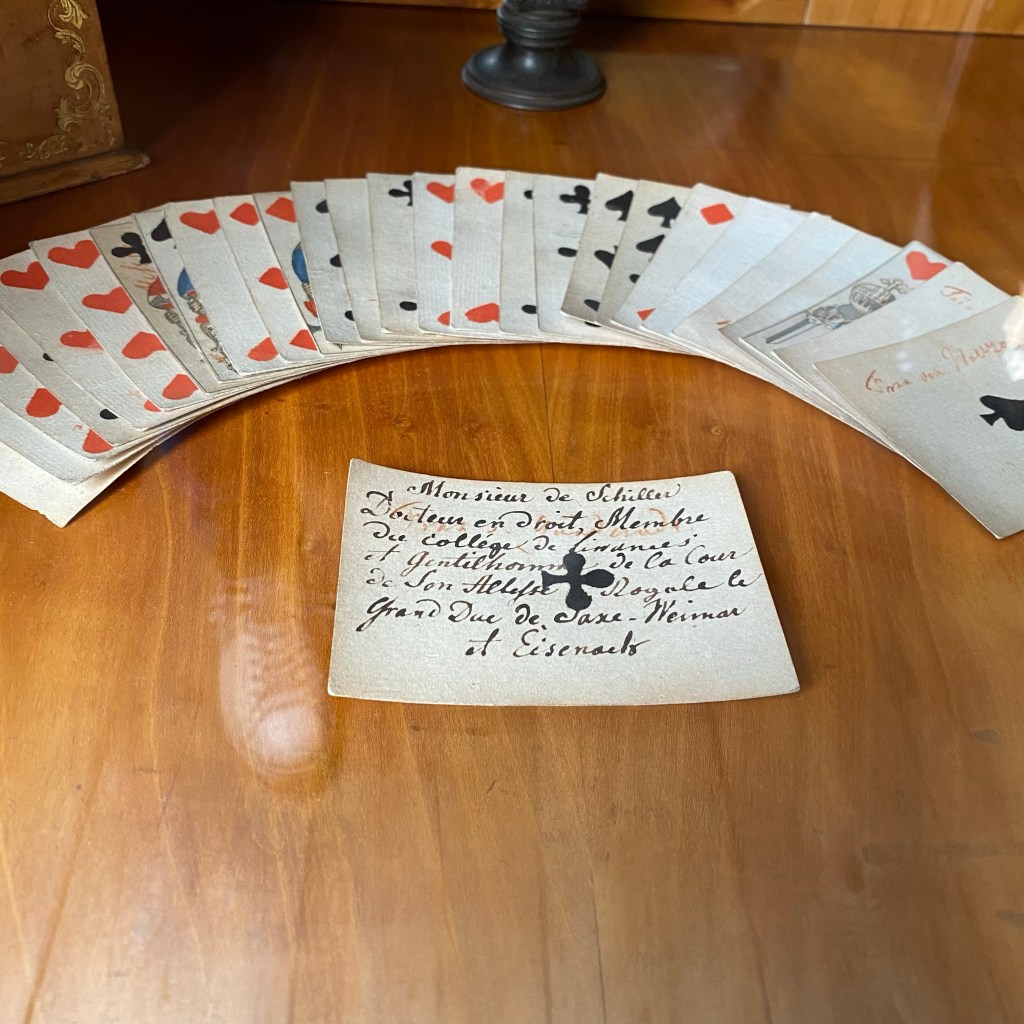 Monsieur de Schiller
Docteur en droit, Membre
du collége de finances
et Gentilhomme de la Cour
de Son Altesse Royale le
Grand Duc de Saxe-Weimar
et Eisenach
von